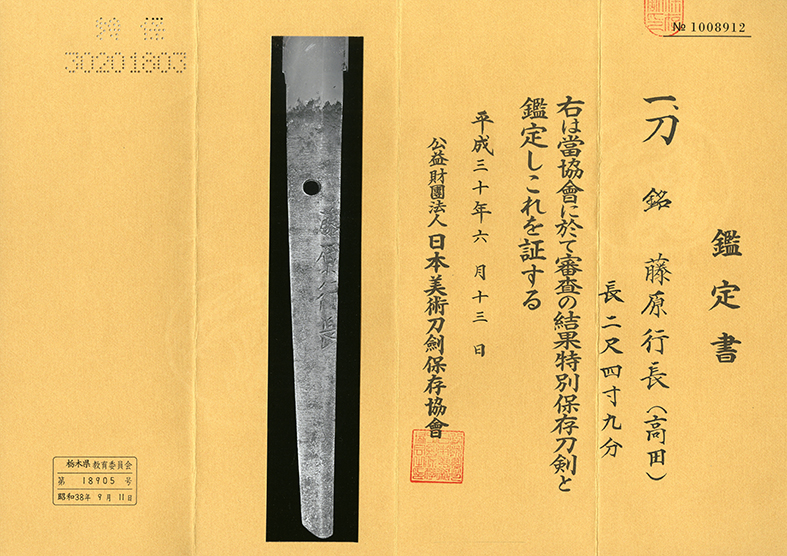 № 1008912
鑑定書
一、刀 銘 藤原行長(高田)
長二尺四寸九分
右は當協會に於て審査の結果特別保存刀剣と
鑑定しこれを証する
平成三十年六月十三日
公益財團法人日本美術刀劍保存協會
藤原行長
特保
30201803
栃木県教育委員会
第 18905 号
昭和38年 9月 11日